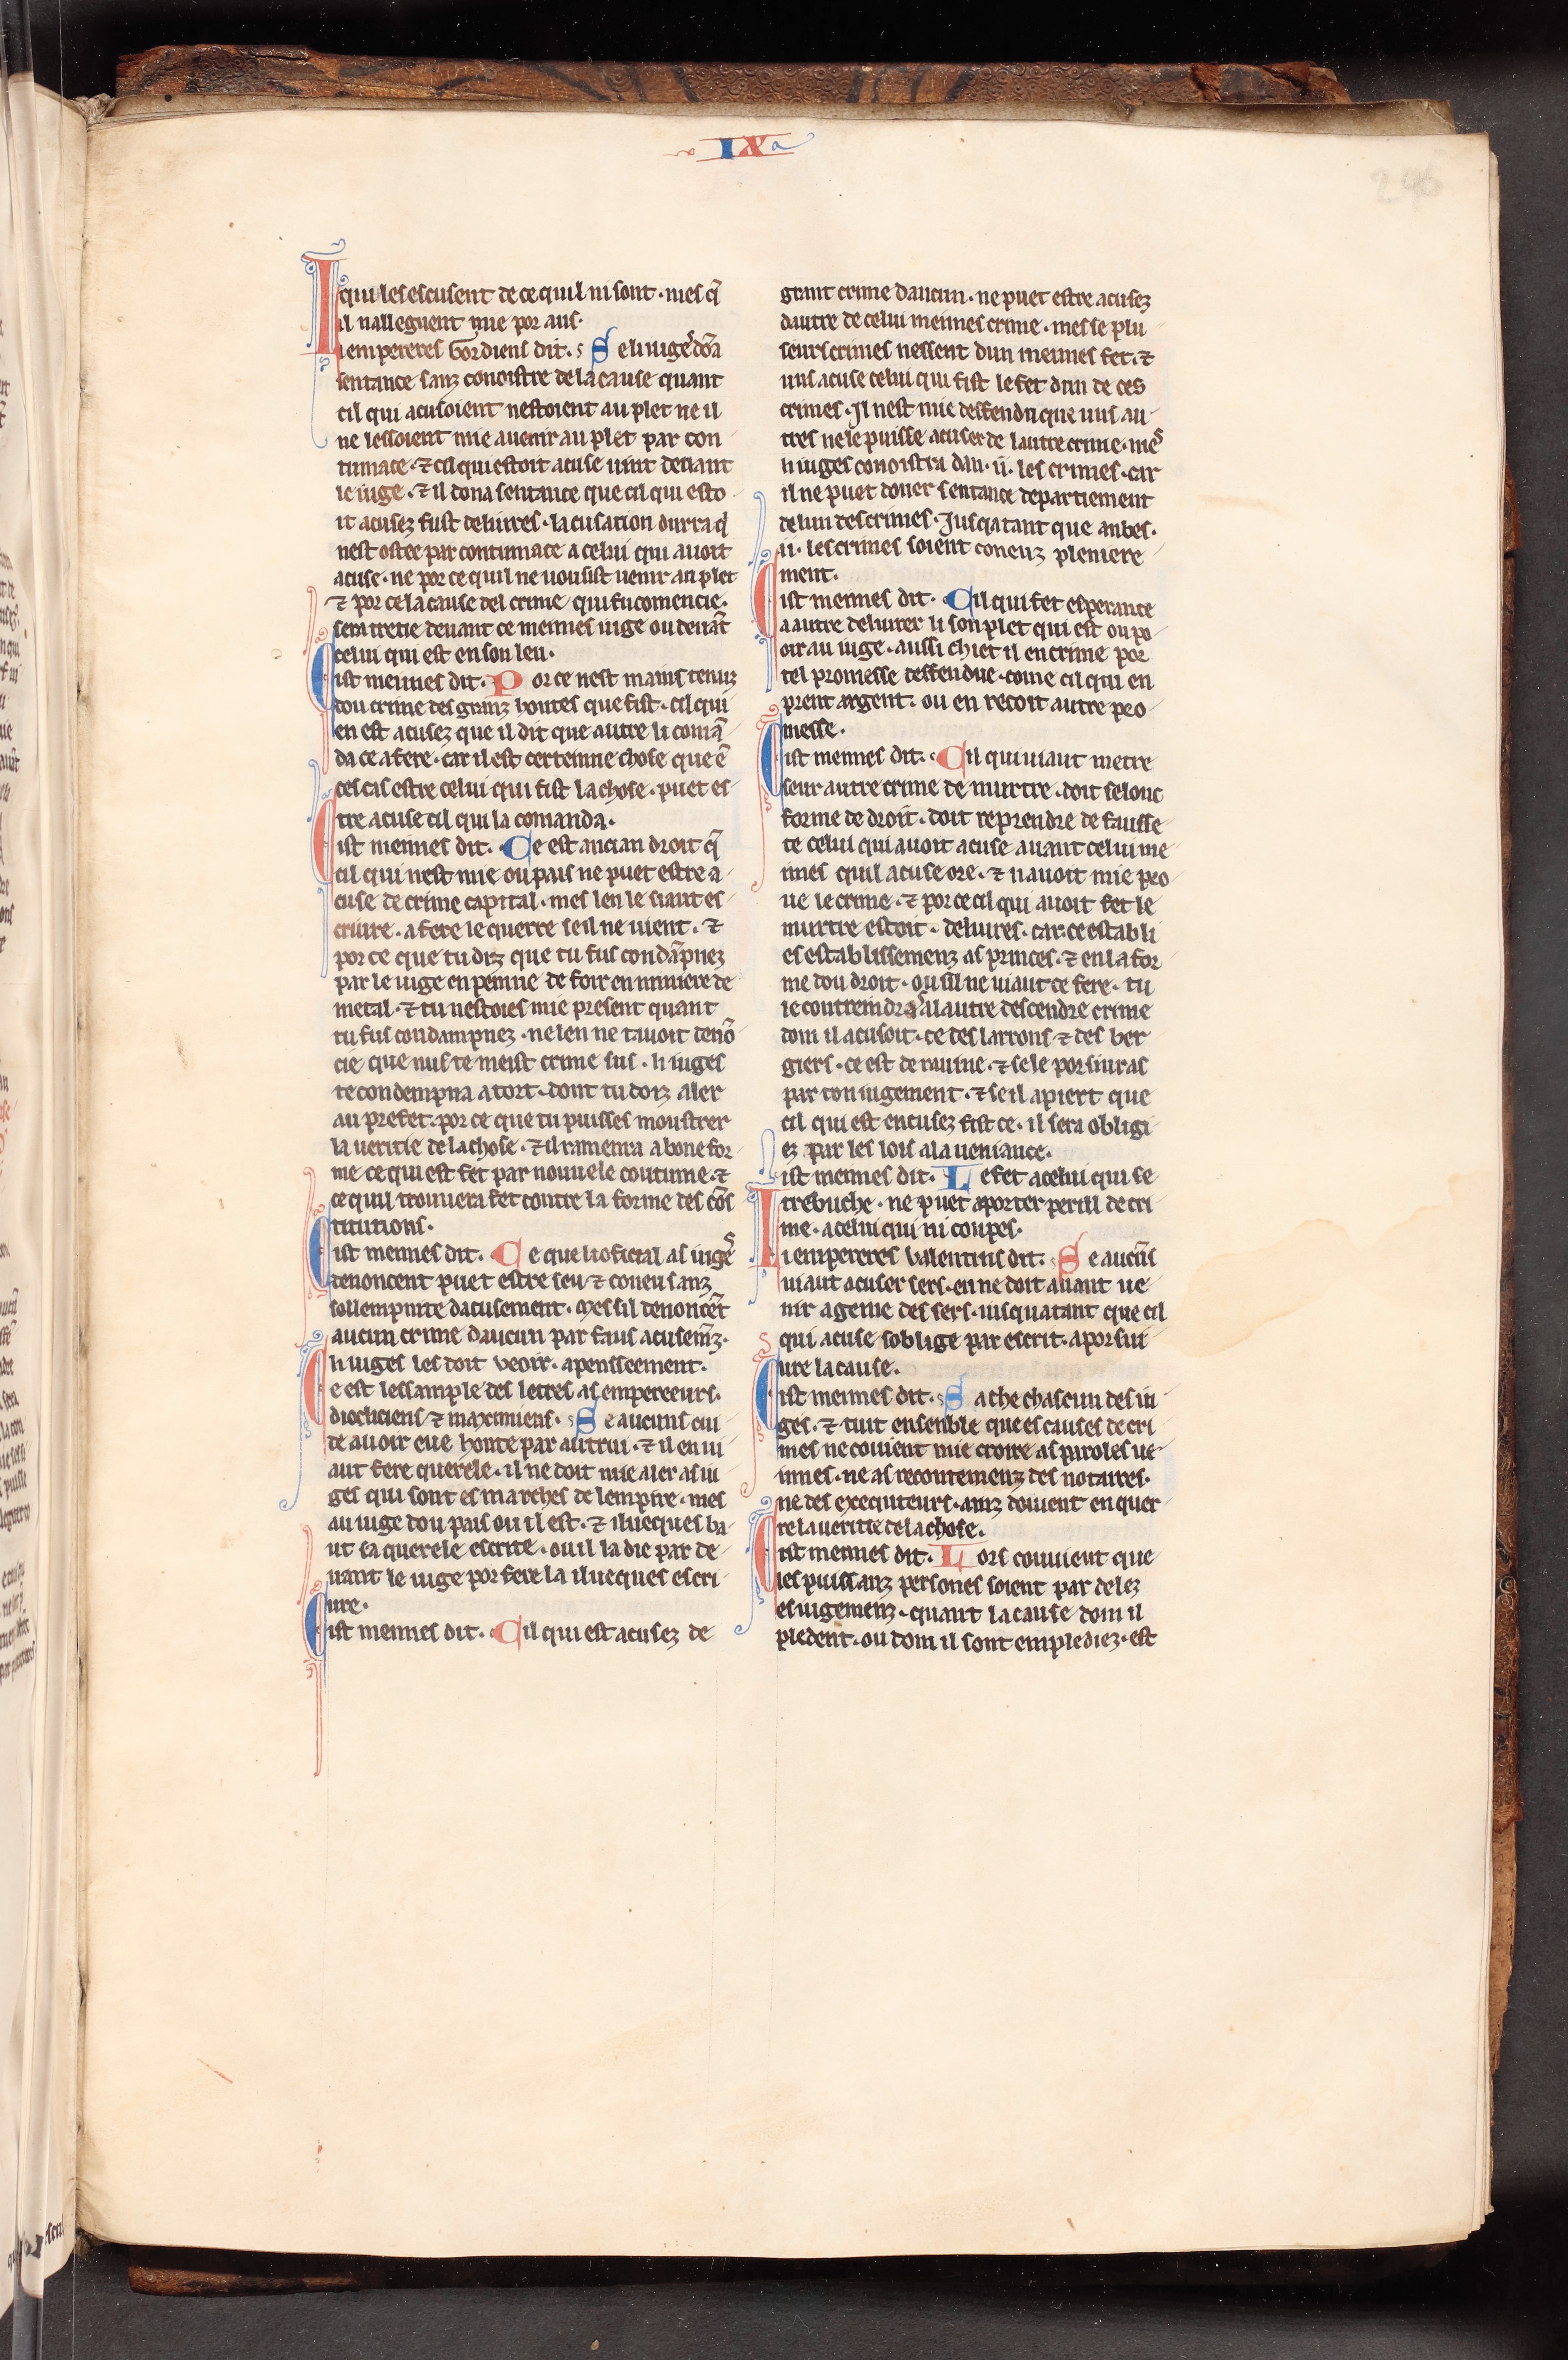 IX
246
qui les escusent de ce quil ni sont · mes q̃
il nalleguent mie por aus·
Li empereres Gordiens dit. Se li iuge dõa
sentance sanz conoistre de la cause quant
cil qui acusoient nestoient au plet ne il
ne lessoient mie auenir au plet par con
tumace · ⁊ cil qui estoit acuse uint deuant
le iuge · ⁊ il dona sentance que cil qui esto
it acusez fust deliures · lacusation durra q̃
nest ostee par contumace a celui qui auoit
acuse · ne por ce quil ne uousist uenir au plet
⁊ por ce la cause del crime qui fu comencie·
sera tretie deuant ce meimes iuge ou deuãt
celui qui est en son leu·
Cist meimes dit. Por ce nest mains tenuz
dou crime des granz hontes que fist · cil qui
en est acusez que il dit que autre li comã
da ce a fere · car il est certeinne chose que ẽ
ces cas estre celui qui fist la chose · puet es
tre acuse cil qui la comanda·
Cist meimes dit. Ce est ancian droit q̃
cil qui nest mie ou pais ne puet estre a
cuse de crime capital · mes len le siaut es
criure · a fere le querre se il ne uient · ⁊
por ce que tu diz que tu fus condãpnez
par le iuge en peinne de foir en miniere de
metal · ⁊ tu nestoies mie present quant
tu fus condampnez · ne len ne tauoit denõ
cie que nus te meist crime sus · li iuges
te condempna a tort · dont tu doiz aler
au prefet · por ce que tu puisses moustrer
la ueritie de la chose · ⁊ il ramenra a bone for
me ce qui est fet par nouuele coutume · ⁊
ce quil trouuera fet contre la forme des cõs
titutions·
Cist meimes dit. Ce que li oficial as iuges
denoncent puet estre seu ⁊ coneu sanz
sollempnite dacusement · Mes sil denoncẽt
aucun crime daucun par faus acusemẽz·
li iuges les doit veoir · apensseement·
Ce est lessample des letres as empereeurs·
diocliciens ⁊ maximiens · Se aucuns cui
de auoir eue honte par autrui · ⁊ il en ui
aut fere querele · il ne doit mie aler as iu
ges qui sont es marches de lempire · mes
au iuge dou pais ou il est · ⁊ ilueques ba
ut sa querele escrite · ou il la die par de
uant le iuge por fere la ilueques escri
ure·
Cist meimes dit. Cil qui est acusez de
grant crime daucun · ne puet estre acusez
dautre de celui meimes crime · mes se plu
seurs crimes nessent dun meimes fet · ⁊
uns acuse celui qui fist le fet dun de ces
crimes · Il nest mie deffendu que uns au
tres ne le puisse acuser de lautre crime · mes
li iuges conoistra dan · ii · les crimes · car
il ne puet doner sentance departiement
de lun des crimes · Jusqatant que anbes·
ii · les crimes soient coneuz pleniere
ment·
Cist meimes dit. Cil qui fet esperance
a autre deliurer li son plet qui est ou po
oir au iuge · aussi chiet il en crime por
tel promesse deffendue · come cil qui en
prent argent · ou en recoit autre pro
messe·
Cist meimes dit. Cil qui uiaut metre
seur autre crime de murtre · doit selonc
forme de droit · doit reprendre de fausse
te celui qui auoit acuse auant celui me
imes quil acuse ore · ⁊ n auoit mie pro
ue le crime · ⁊ por ce cil qui auoit fet le
murtre estoit · deliures · car ce establi
es establissemenz as princes · ⁊ en la for
me dou droit · ou sil ne uiaut ce fere · tu
le contreindras al autre descendre crime
dom il acusoit · ce des larrons ⁊ des ber
giers · ce est de rauine · ⁊ se le porsiuras
par ton iugement · ⁊ se il apiert que
cil qui est encusez fist ce · il sera obligi
ez par les lois a la ueniance·
Cist meimes dit. Le fet a celui qui se
trebuche · ne puet aporter perill de cri
me · a celui qui ni coupes·
Li empereres Valentins dit. Se aucũs
uiaut acuser sers · en ne doit auant ue
nir a geine des sers · iusquatant que cil
qui acuse soblige par escrit · a porsui
ure la cause·
Cist meimes dit. Sache chascun des iu
ges · ⁊ tuit ensenble que es causes de cri
mes ne couient mie croire as paroles ue
imes · ne as recontemenz des notaires·
ne des executeurs · ainz doiuent en quer
re la ueritie de la chose·
Cist meimes dit. Lors couuient que
les puissanz persones soient par delez
es iugemenz · quant la cause dom il
pledent · ou dom il sont emplediez · est